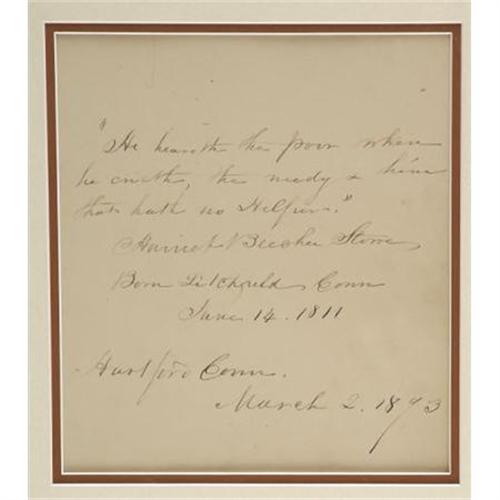 "He heareth the poor when
he crieth, the needy & him
that hath no Helper."
Harriet Beecher Stowe
Born Litchfield, Conn
June 14. 1811
Hartford Conn.
March 2. 1893